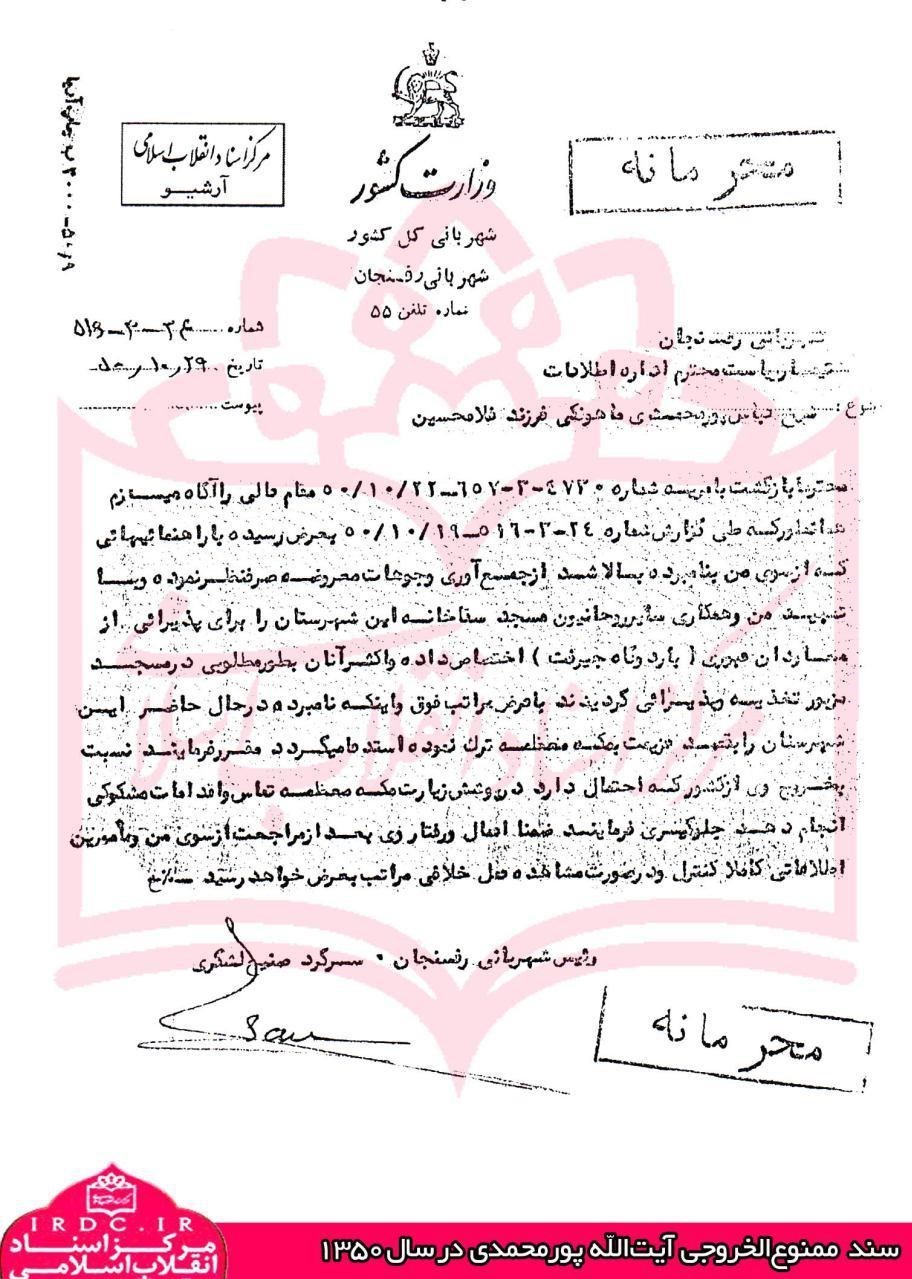 مرکز اسناد انقلاب اسلامی
آرشیو
محرمانه
وزارت کشور
شهربانی کل کشور
شهربانی رفسنجان
شماره تلفن ۵۵
شماره ۵۱۶-۳-۲۴
تاریخ ۲۹-۱۰-۵۰
پیوست
شهربانی رفسنجان
تیمسار ریاست محترم اداره اطلاعات
شیخ عباس پورمحمدی ماهونکی فرزند غلامحسین
محترما بازگشت بامریه شماره ۴۷۳۰-۳-۶۵۷-۵۰/۱۰/۲۲ مقام عالی را آگاه میسازم
همانطورکه طی گزارش شماره ۲۴-۳-۵۱۶-۵۰/۱۰/۱۹ بعرض رسیده با راهنمائیهائی
که از سوی من بنامبرده بالا شد از جمع آوری وجوهات معروضه صرفنظر نموده وبا
من وهمکاری سایر روحانیون مسجد سقاخانه این شهرستان را برای پذیرائی از
عبوری ( باردوگاه جیرفت ) اختصاص داده واکثر آنان بطور مطلوبی درمسجد
مزبور تغذیه وپذیرائی گردیدند باعرض مراتب فوق واینکه نامبرده درحال حاضر این
شهرستان را بقصد عزیمت بمکه معظمه ترک نموده استدعا میگردد مقرر فرمایند نسبت
بخروج وی از کشور که احتمال دارد در پوشش زیارت مکه معظمه تماس واقدامات مشکوکی
انجام دهد جلوگیری فرمایند ضمنا اعمال ورفتار وی بعد از مراجعت از سوی من ومامورین
اطلاعاتی کاملا کنترل ودرصورت مشاهده عمل خلافی مراتب بعرض خواهد رسید
رئیس شهربانی رفسنجان - سرگرد صنیع لشگری
محرمانه
IRDC.IR
مرکز اسناد
انقلاب اسلامی
سند ممنوع‌الخروجی آیت‌الله پورمحمدی در سال ۱۳۵۰